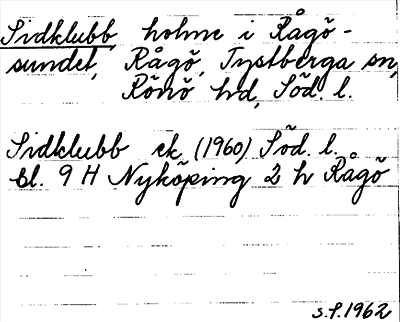 Sidklubb, holme i Rågö-
sundet, Rågö, Tystberga sn,
Rönö hd, Söd. l.
Sidklubb ek. (1960) Söd. l.
bl. 9 H Nyköping 2 h Rågö
s.f. 1962